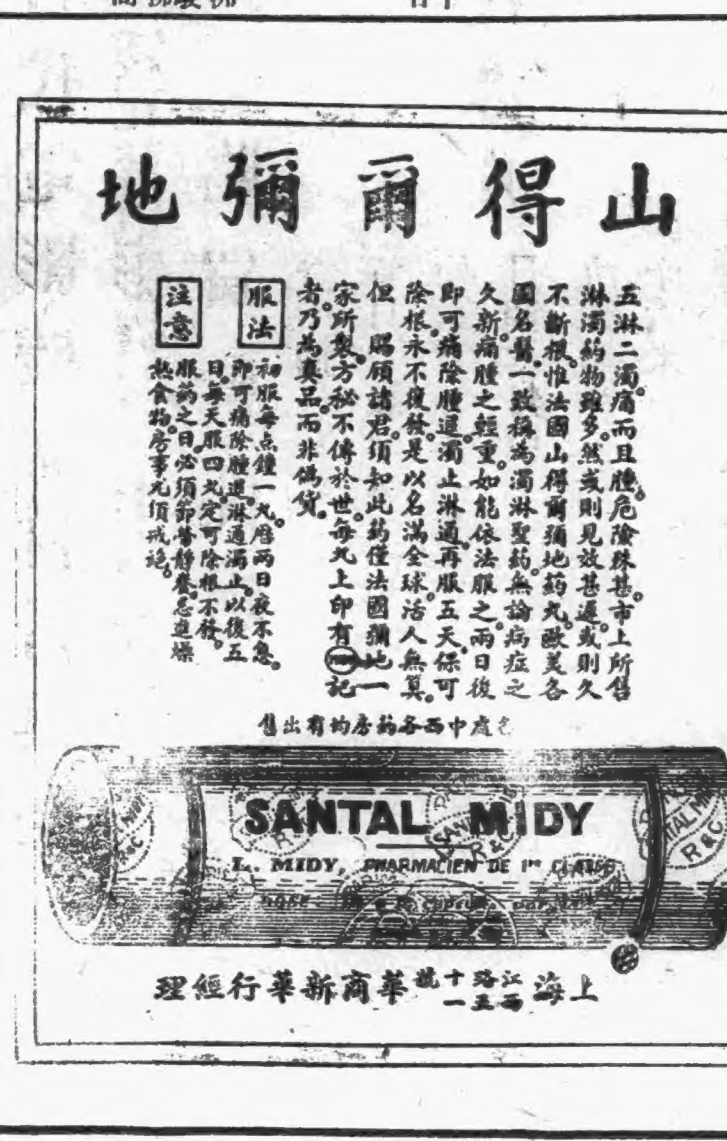 山得爾彌地
五淋二濁。痛而且腫。危險殊甚。市上所售
淋濁葯物雖多。然或則見效甚遲。或則久
不斷根。惟法國山得爾彌地葯丸。歐美各
國名醫。一致稱為濁淋聖葯。無論病症之
久新。痛腫之輕重。如能依法服之。兩日後
即可痛除腫退。濁止淋通。再服五天。保可
除根。永不復發。是以名滿全球。活人無算。
但 賜顧諸君。須知此葯僅法國彌地一
家所製。方秘不傳於世。每丸上印有 記
者。乃為真品。而非偽貨。
服法
初服每点鐘一丸。歷兩日夜不怠。
即可痛除腫退。淋通濁止。以後五
日。每天服四丸。定可除根不發。
注意
服葯之日。必須節勞靜養。忌進燥
熱食物。房事尤須戒絶。
各處中西各葯房均有出售
SANTAL MIDY
L. MIDY, PHARMACIEN DE 1re CLASSE
上海江西路五十一號華商新華行經理